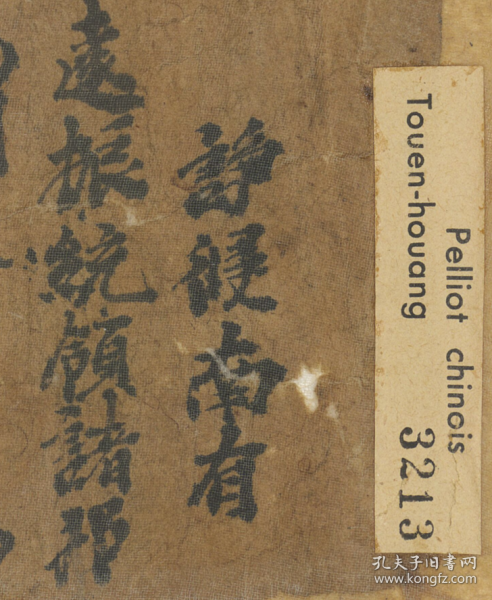 Pelliot chinois
Touen-houang 3213
諍侵南有
遠振統領諸邦
孔夫子旧书网
www.kongfz.com